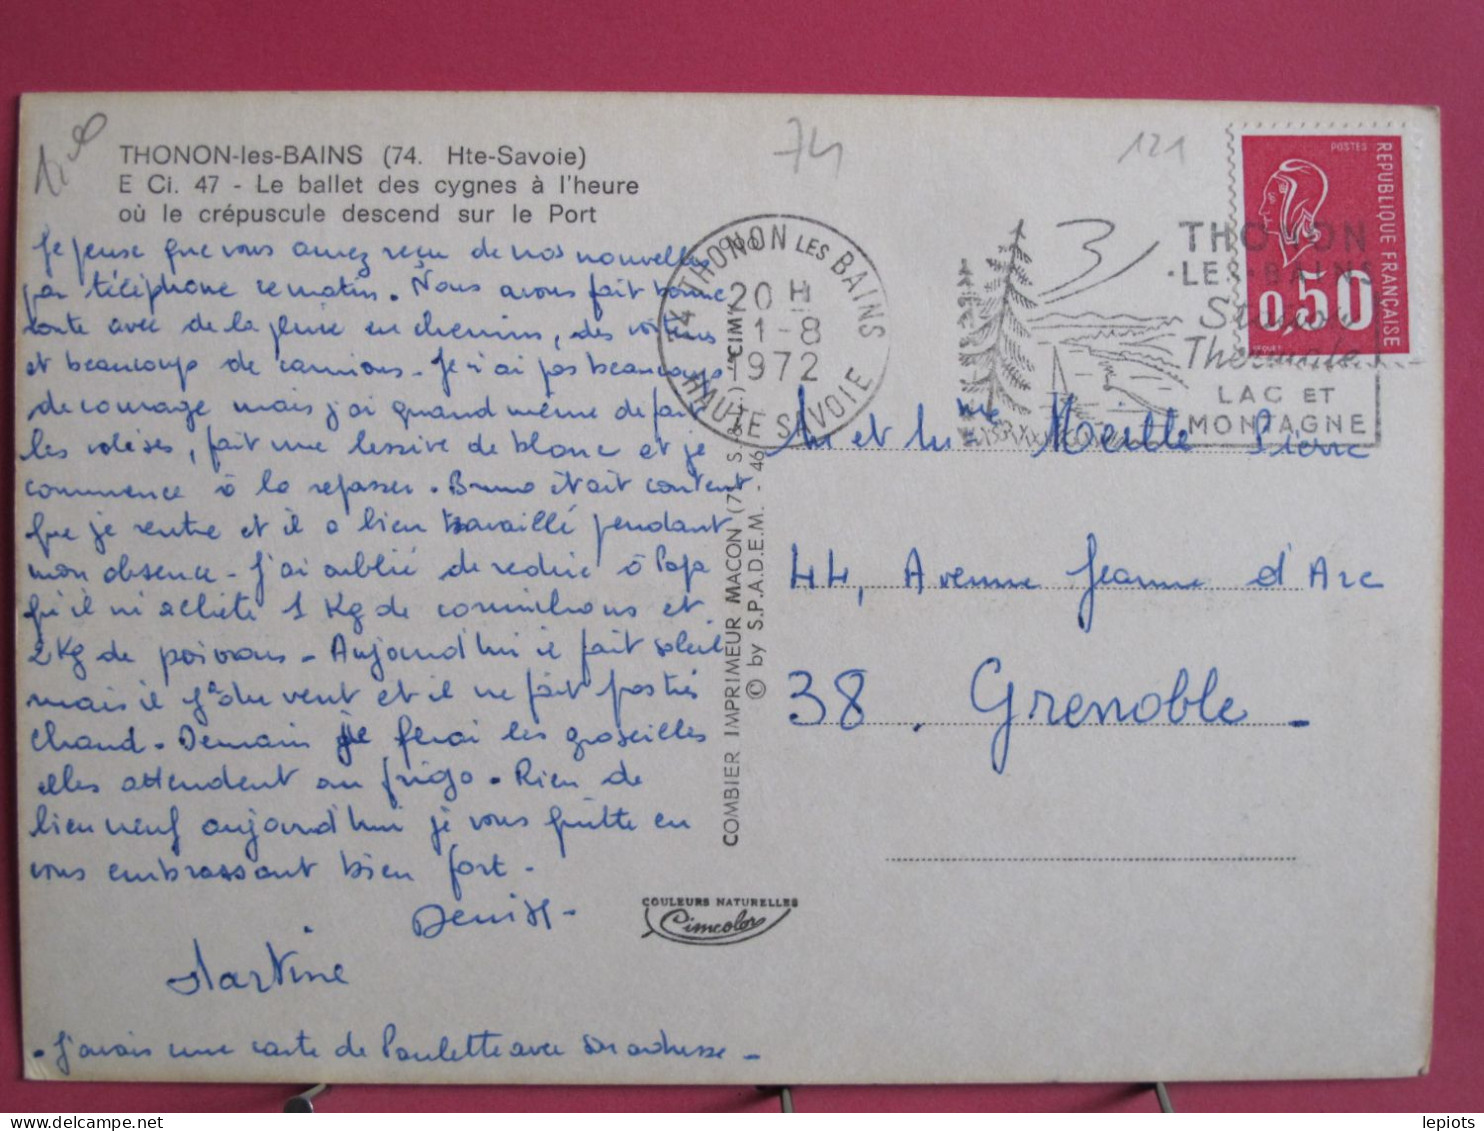 THONON-les-BAINS (74. Hte-Savoie)
E Ci. 47 - Le ballet des cygnes à l'heure
où le crépuscule descend sur le Port
Je pense que vous aurez reçu de nos nouvelles
par téléphone ce matin. Nous avons fait bonne
route avec de la pluie en chemin, des voitures
et beaucoup de camions. Je n'ai pas beaucoup
de courage mais j'ai quand même défait
les valises, fait une lessive de blanc et je
commence à la repasser. Bruno était content
que je rentre et il a bien travaillé pendant
mon absence - J'ai oublié de redire à Papa
qu'il m'achète 1 Kg de cornichons et
2 Kg de poivrons - Aujourd'hui il fait soleil
mais il y a du vent et il ne fait pas très
chaud. Demain je ferai les groseilles
elles attendent au frigo. Rien de
bien neuf aujourd'hui je vous quitte en
vous embrassant bien fort.
Denise -
Martine
- J'avais une carte de Paulette avec son adresse -
74
121
74 THONON LES BAINS
20 H
1-8
1972
HAUTE SAVOIE
THONON
·LES·BAINS
Station
Thermale
LAC ET
MONTAGNE
POSTES
REPUBLIQUE FRANÇAISE
0,50
Mr et Mme Pierre
44, Avenue Jeanne d'Arc
38. Grenoble -
COMBIER IMPRIMEUR MACON (7 S. & "CIM"
© by S.P.A.D.E.M. - 46
COULEURS NATURELLES
Cimcolor
lepiots